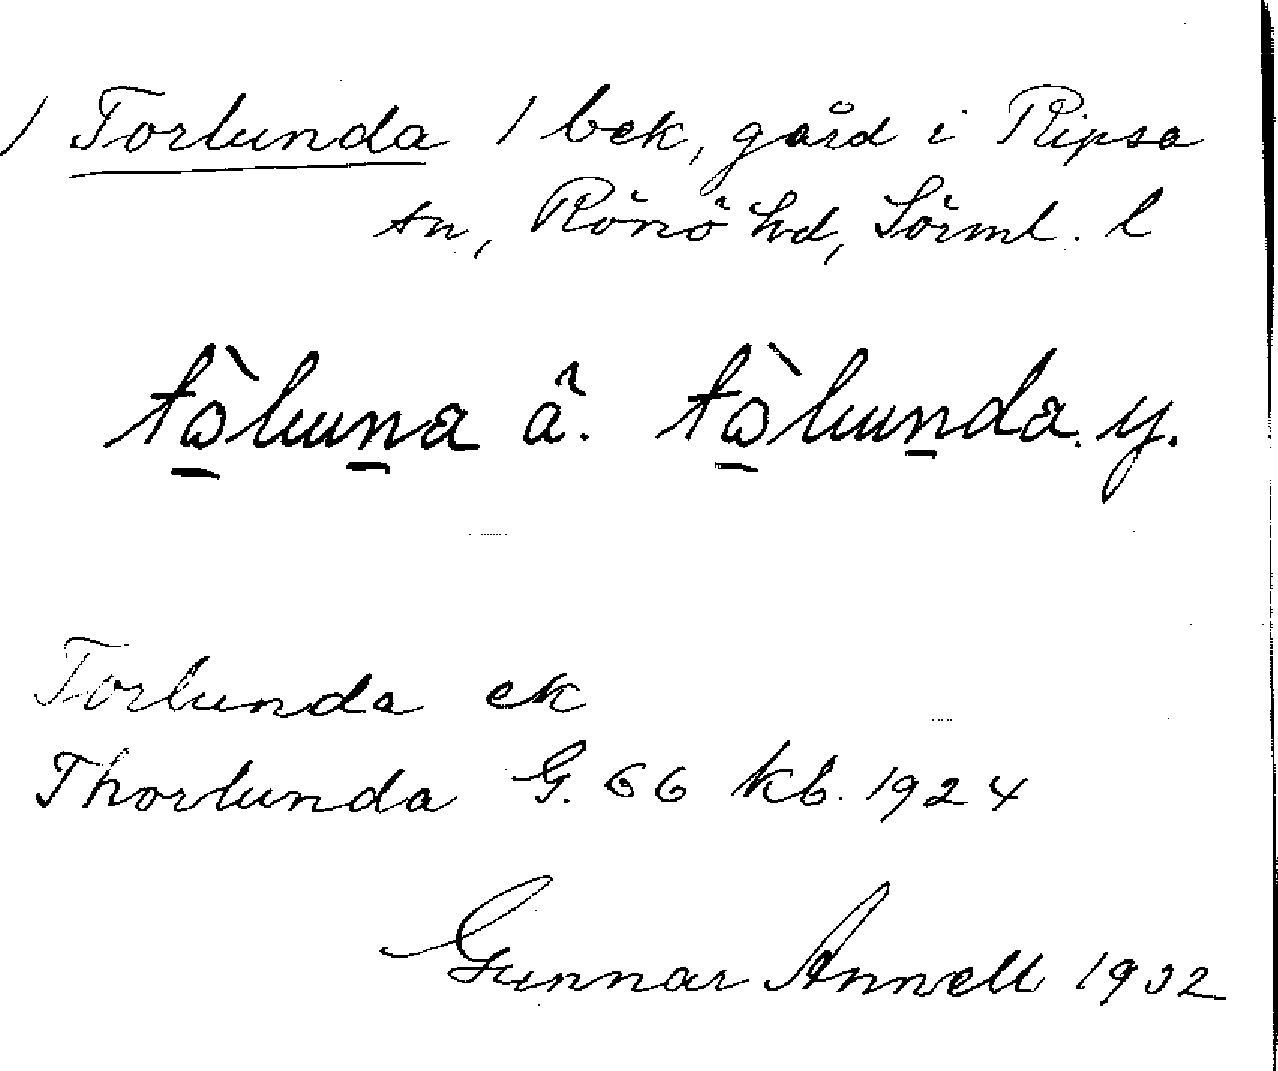 / Torlunda / bek, gård i Ripsa
sn, Rönö hd, Sörml. l
tòluna ä. tòlunda. y.
Torlunda ek
Thorlunda G. 66 kb. 1924
Gunnar Annell 1932